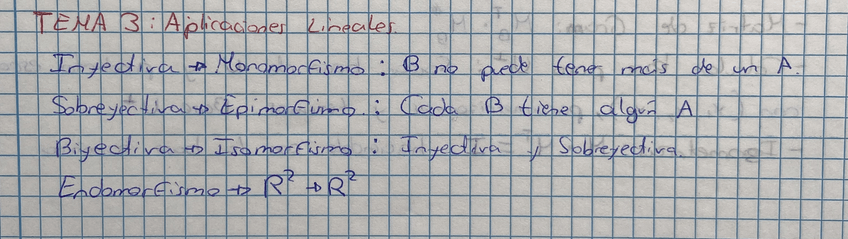 TEMA 3: Aplicaciones Lineales.
Inyectiva → Monomorfismo: B no puede tener más de un A.
Sobreyectiva → Epimorfismo.: Cada B tiene algún A
Biyectiva → Isomorfismo: Inyectiva y Sobreyectiva.
Endomorfismo → R² → R²